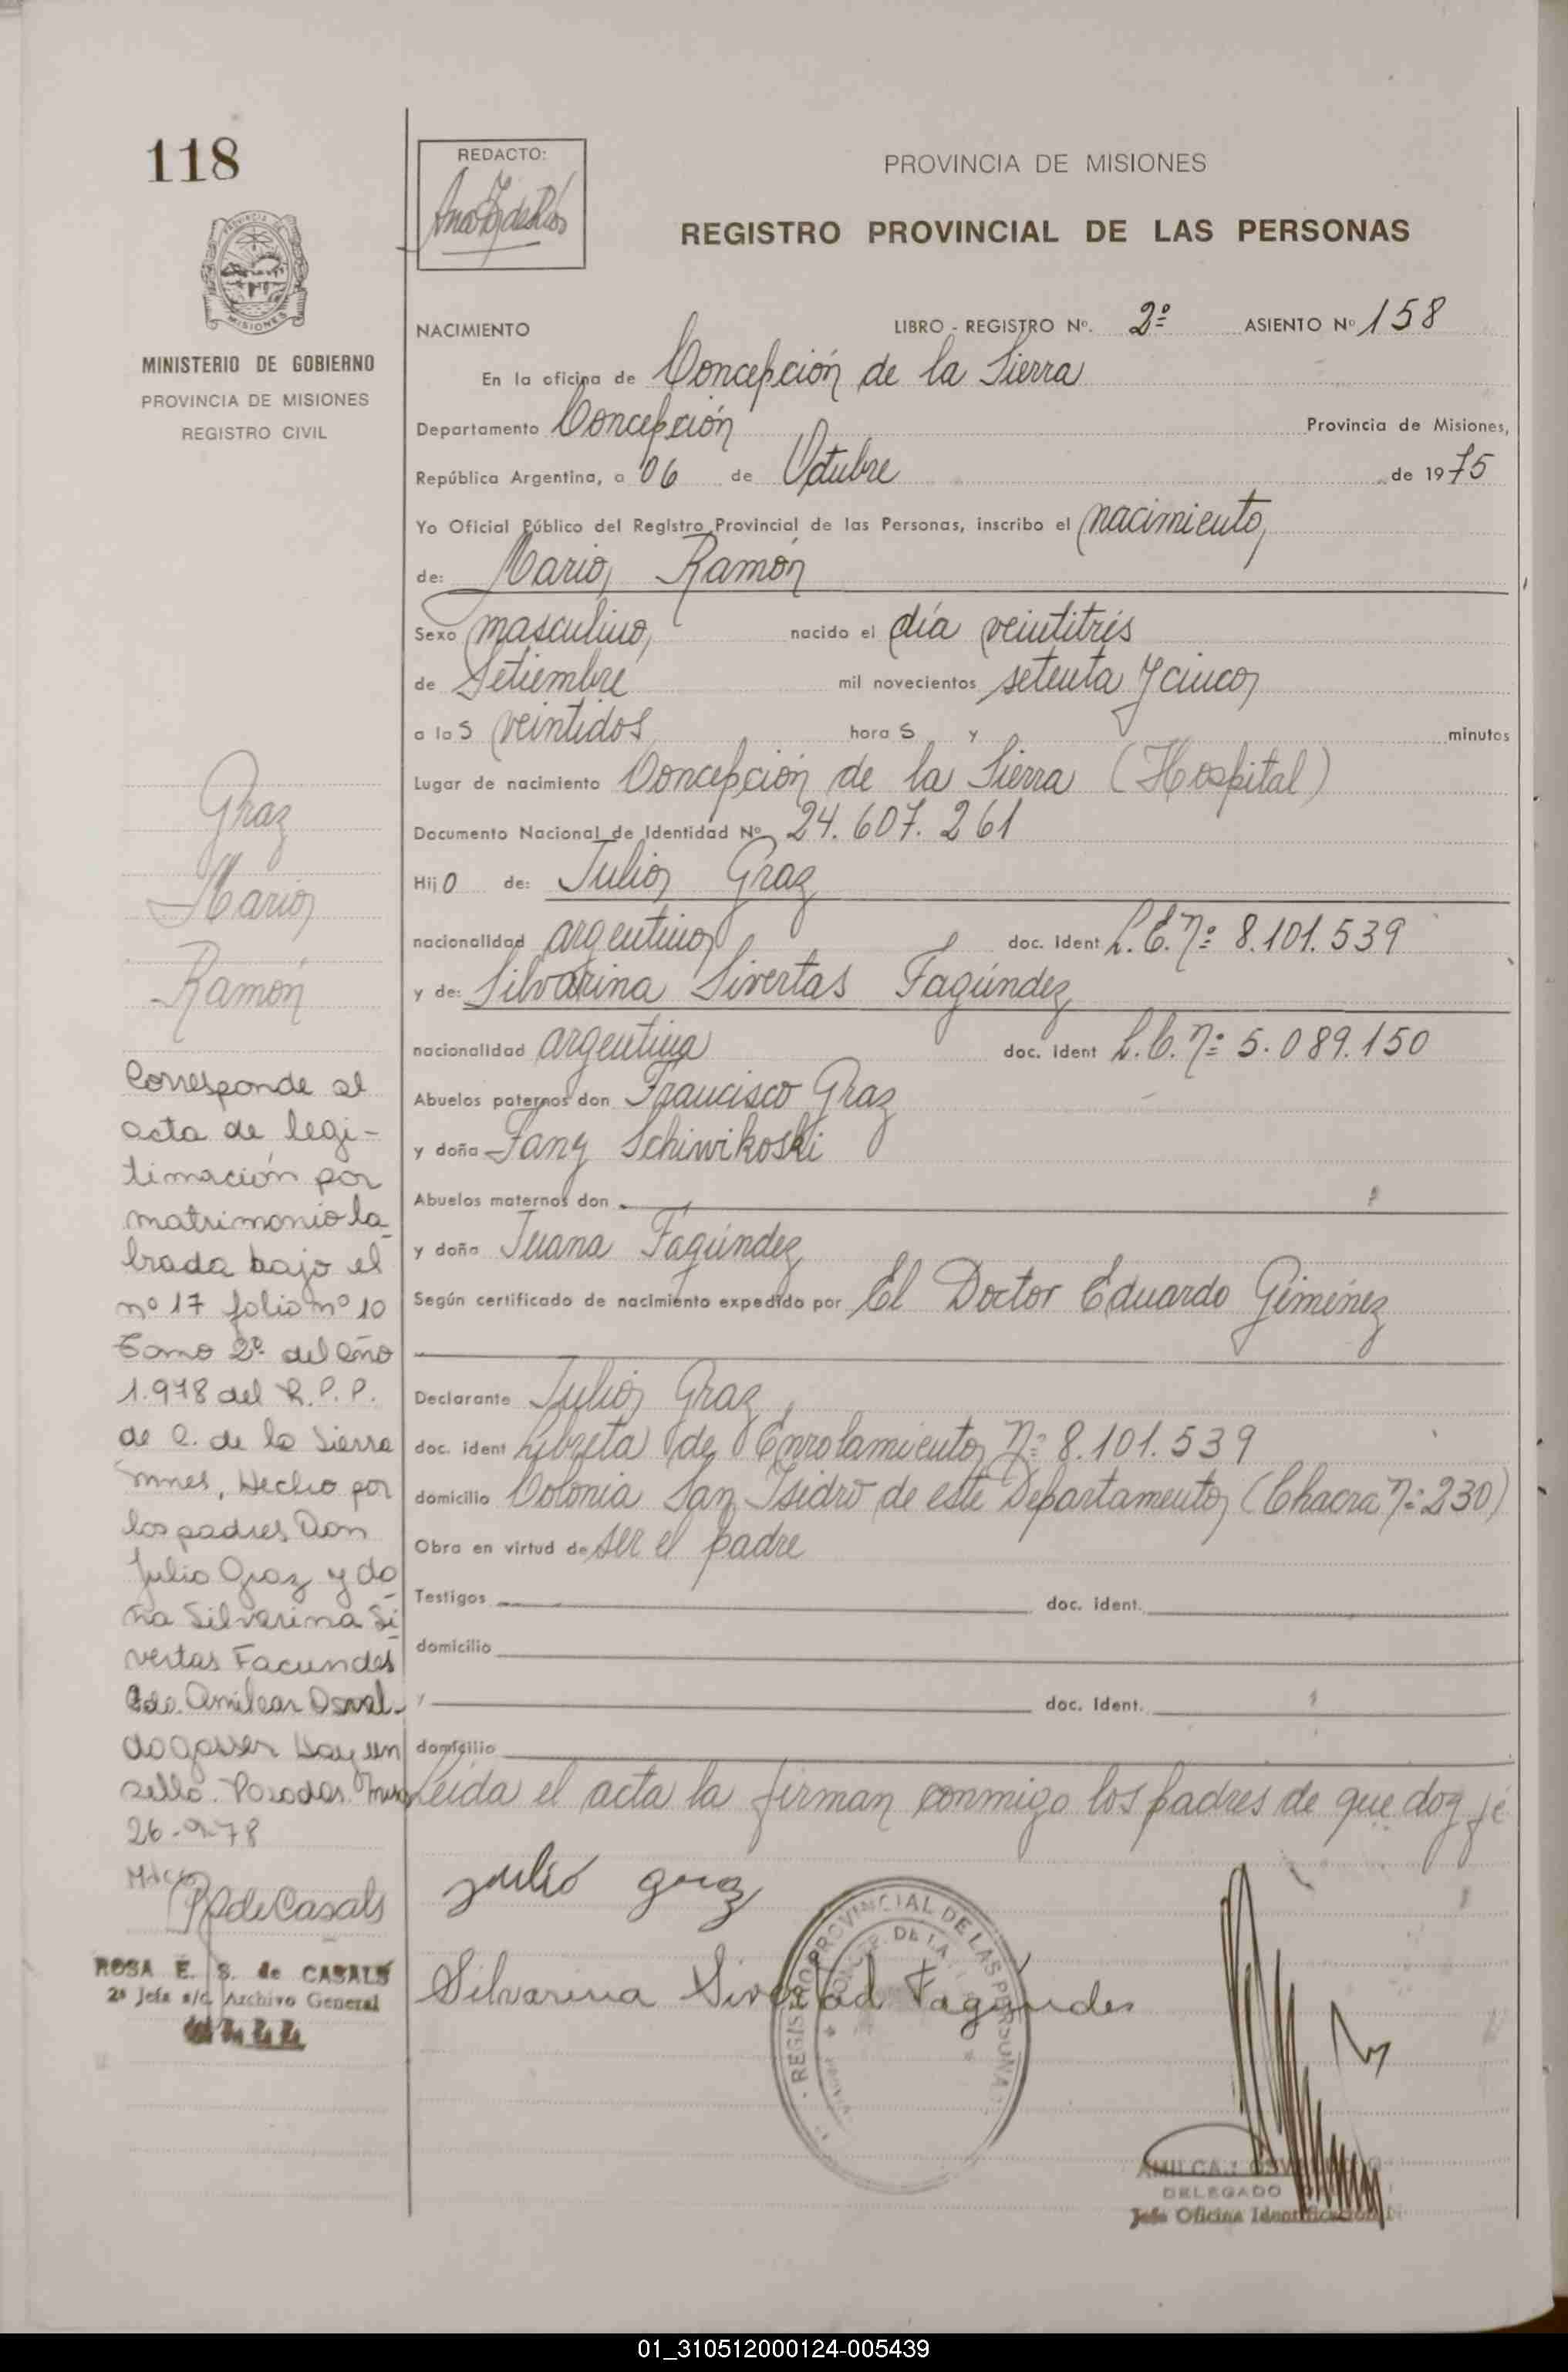 118
PROVINCIA DE
MISIONES
MINISTERIO DE GOBIERNO
PROVINCIA DE MISIONES
REGISTRO CIVIL
Graz
Mario
Ramón
Corresponde al
acta de legi-
timación por
matrimonio la-
brada bajo el
nº 17 folio nº 10
Tomo 2º del año
1.978 del R.P.P.
de C. de la Sierra
Mnes, Hecho por
los padres Don
Julio Graz y do-
ña Silvarina Si-
vertas Facundes
Fdo. Amilcar Osval-
do Gasser hay un
sello. Posadas Mnes
26-9-78
ROSA E. S. de CASALS
2ª Jefa a/c. Archivo General
REDACTO:
PROVINCIA DE MISIONES
REGISTRO PROVINCIAL DE LAS PERSONAS
NACIMIENTO LIBRO - REGISTRO Nº. 2º ASIENTO Nº 158
En la oficina de Concepción de la Sierra
Departamento Concepción Provincia de Misiones,
República Argentina, a 06 de Octubre de 1975
Yo Oficial Público del Registro Provincial de las Personas, inscribo el nacimiento
de: Mario Ramón
Sexo masculino nacido el día veintitrés
de Setiembre mil novecientos setenta y cinco
a las veintidos horas y minutos
Lugar de nacimiento Concepción de la Sierra (Hospital)
Documento Nacional de Identidad Nº 24.607.261
Hijo de: Julio Graz
nacionalidad argentino doc. Ident L.E. Nº 8.101.539
y de: Silvarina Sivertas Fagúndez
nacionalidad argentina doc. Ident L.C. Nº 5.089.150
Abuelos paternos don Francisco Graz
y doña Fany Schiwikoski
Abuelos maternos don
y doña Juana Fagúndez
Según certificado de nacimiento expedido por El Doctor Eduardo Giménez
Declarante Julio Graz
doc. ident Libreta de Enrolamiento Nº 8.101.539
domicilio Colonia San Isidro de este Departamento (Chacra Nº 230)
Obra en virtud de ser el padre
Testigos doc. ident.
domicilio
y doc. Ident.
domicilio
Leída el acta la firman conmigo los padres de que doy fé
Julio graz
Silvarina Sivertad Fagundes
REGISTRO PROVINCIAL DE LAS PERSONAS
DELEGADO
Jefe Oficina Identificación
01_310512000124-005439